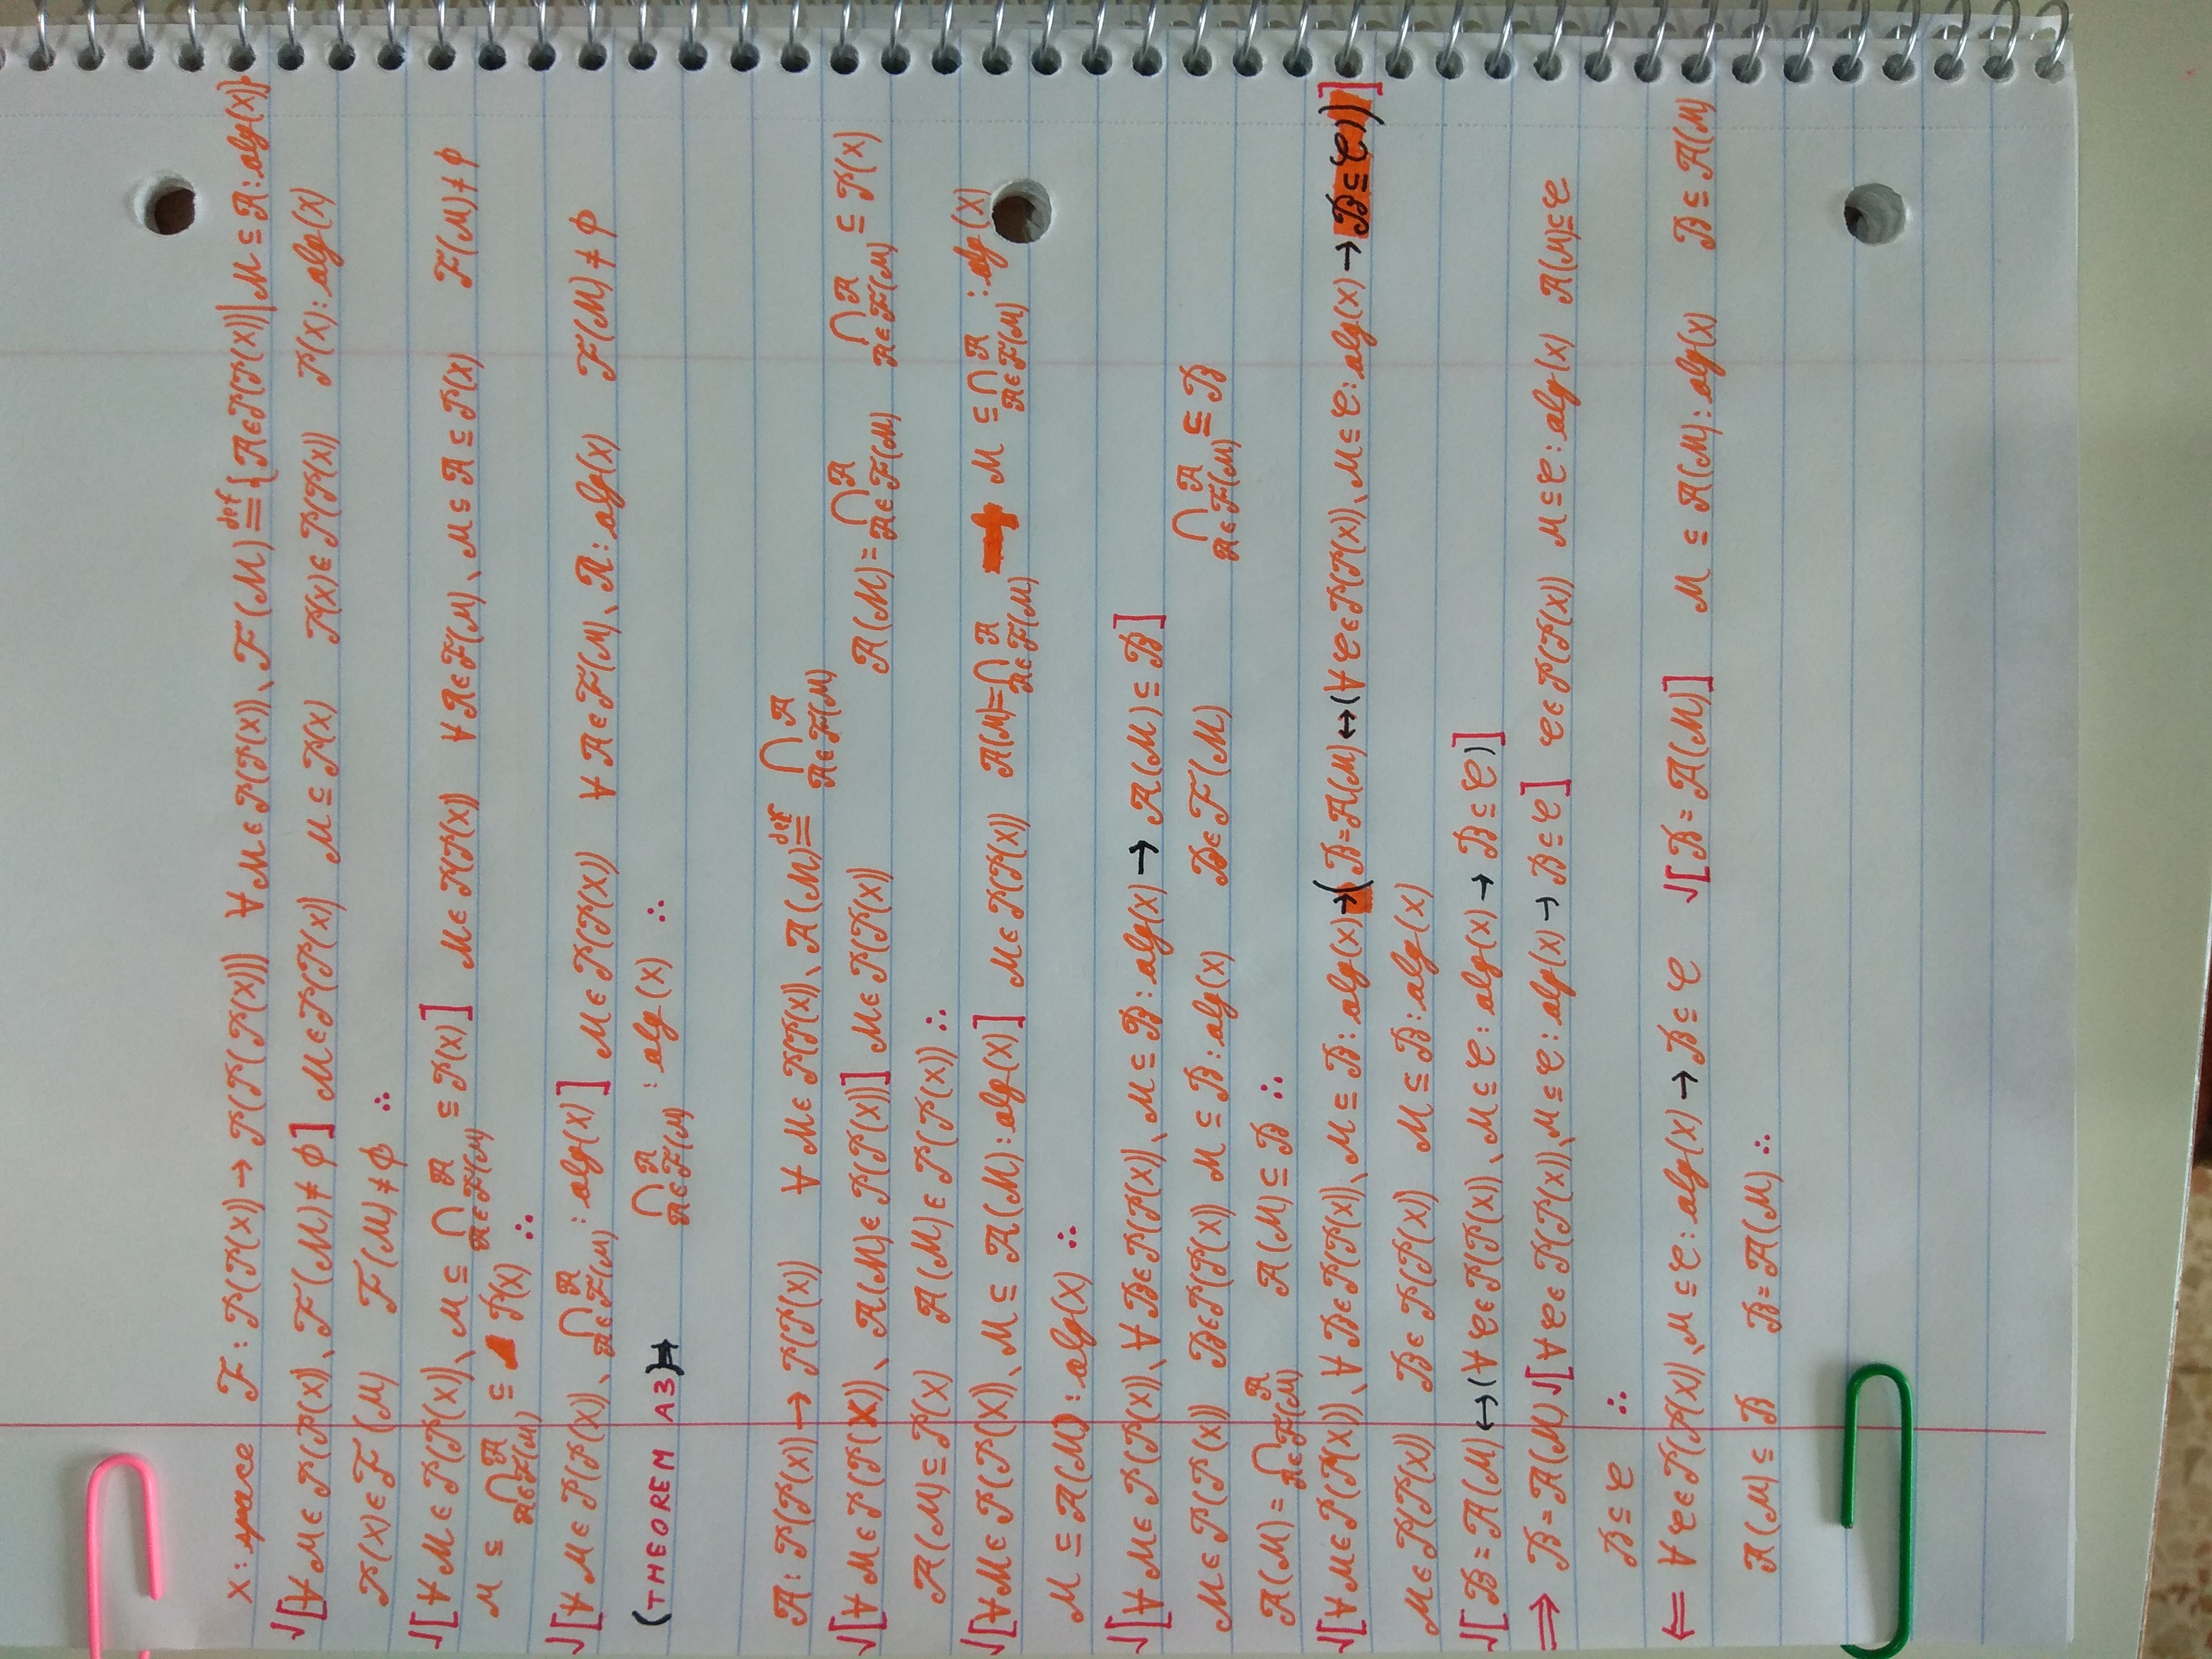 X: space   ℱ: 𝒫(𝒫(X)) → 𝒫(𝒫(𝒫(X)))   ∀ℳ∈𝒫(𝒫(X)), ℱ(ℳ) ≝ {𝒜∈𝒫(𝒫(X)) | ℳ⊆𝒜: alg(X)}
√[∀ℳ∈𝒫(𝒫(X)), ℱ(ℳ)≠ϕ]   ℳ∈𝒫(𝒫(X))   ℳ⊆𝒫(X)   𝒫(X)∈𝒫(𝒫(X))   𝒫(X): alg(X)
𝒫(X)∈ℱ(ℳ)   ℱ(ℳ)≠ϕ ∴
√[∀ℳ∈𝒫(𝒫(X)), ℳ ⊆ ⋂_{𝒜∈ℱ(ℳ)} 𝒜 ⊆ 𝒫(X)]   ℳ∈𝒫(𝒫(X))   ∀𝒜∈ℱ(ℳ), ℳ⊆𝒜⊆𝒫(X)   ℱ(ℳ)≠ϕ
ℳ ⊆ ⋂_{𝒜∈ℱ(ℳ)} 𝒜 ⊆ 𝒫(X) ∴
√[∀ℳ∈𝒫(𝒫(X)), ⋂_{𝒜∈ℱ(ℳ)} 𝒜: alg(X)]   ℳ∈𝒫(𝒫(X))   ∀𝒜∈ℱ(ℳ), 𝒜: alg(X)   ℱ(ℳ)≠ϕ
(THEOREM A3)   ⋂_{𝒜∈ℱ(ℳ)} 𝒜: alg(X) ∴
𝒜: 𝒫(𝒫(X)) → 𝒫(𝒫(X))   ∀ℳ∈𝒫(𝒫(X)), 𝒜(ℳ) ≝ ⋂_{𝒜∈ℱ(ℳ)} 𝒜
√[∀ℳ∈𝒫(𝒫(X)), 𝒜(ℳ)∈𝒫(𝒫(X))]   ℳ∈𝒫(𝒫(X))   𝒜(ℳ) = ⋂_{𝒜∈ℱ(ℳ)} 𝒜   ⋂_{𝒜∈ℱ(ℳ)} 𝒜 ⊆ 𝒫(X)
𝒜(ℳ)⊆𝒫(X)   𝒜(ℳ)∈𝒫(𝒫(X)) ∴
√[∀ℳ∈𝒫(𝒫(X)), ℳ⊆𝒜(ℳ): alg(X)]   ℳ∈𝒫(𝒫(X))   𝒜(ℳ) = ⋂_{𝒜∈ℱ(ℳ)} 𝒜   ℳ ⊆ ⋂_{𝒜∈ℱ(ℳ)} 𝒜: alg(X)
ℳ⊆𝒜(ℳ): alg(X) ∴
√[∀ℳ∈𝒫(𝒫(X)), ∀ℬ∈𝒫(𝒫(X)), ℳ⊆ℬ: alg(X) → 𝒜(ℳ)⊆ℬ]
ℳ∈𝒫(𝒫(X))   ℬ∈𝒫(𝒫(X))   ℳ⊆ℬ: alg(X)   ℬ∈ℱ(ℳ)   ⋂_{𝒜∈ℱ(ℳ)} 𝒜 ⊆ ℬ
𝒜(ℳ) = ⋂_{𝒜∈ℱ(ℳ)} 𝒜   𝒜(ℳ)⊆ℬ ∴
√[∀ℳ∈𝒫(𝒫(X)), ∀ℬ∈𝒫(𝒫(X)), ℳ⊆ℬ: alg(X) → (ℬ=𝒜(ℳ) ↔ (∀𝒞∈𝒫(𝒫(X)), ℳ⊆𝒞: alg(X) → ℬ⊆𝒞))]
ℳ∈𝒫(𝒫(X))   ℬ∈𝒫(𝒫(X))   ℳ⊆ℬ: alg(X)
√[ℬ=𝒜(ℳ) ↔ (∀𝒞∈𝒫(𝒫(X)), ℳ⊆𝒞: alg(X) → ℬ⊆𝒞)]
⇒ ℬ=𝒜(ℳ) √[∀𝒞∈𝒫(𝒫(X)), ℳ⊆𝒞: alg(X) → ℬ⊆𝒞]   𝒞∈𝒫(𝒫(X))   ℳ⊆𝒞: alg(X)   𝒜(ℳ)⊆𝒞
ℬ⊆𝒞 ∴
⇐ ∀𝒞∈𝒫(𝒫(X)), ℳ⊆𝒞: alg(X) → ℬ⊆𝒞   √[ℬ=𝒜(ℳ)]   ℳ⊆𝒜(ℳ): alg(X)   ℬ⊆𝒜(ℳ)
𝒜(ℳ)⊆ℬ   ℬ=𝒜(ℳ) ∴